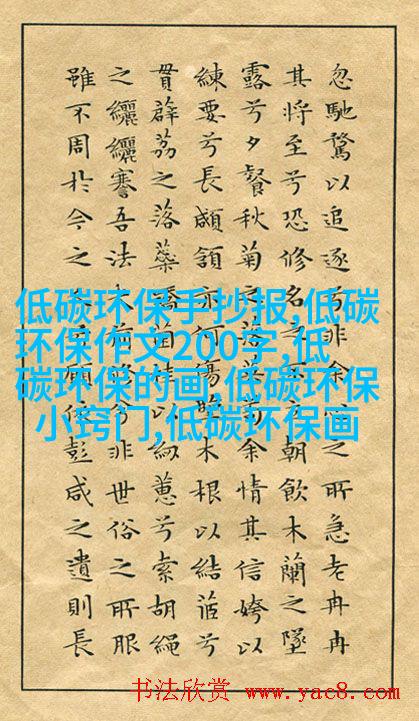 忽馳騖以追逐兮非余心之所急老冉冉
其將至兮恐修名之朝飲木蘭之墜
露兮夕餐秋菊之落英苟余情其信姱以
練要兮長顑頷亦何傷擥木根以結茝兮
貫薜荔之落蘂矯菌桂以紉蕙兮索胡繩
之纚纚謇吾法夫前兮非世俗之所服
雖不周於今之願依彭咸之遺則長
低碳环保手抄报,低碳
环保作文200字,低
碳环保的画,低碳环保
小窍门,低碳环保画
书法欣赏 www.yac8.com